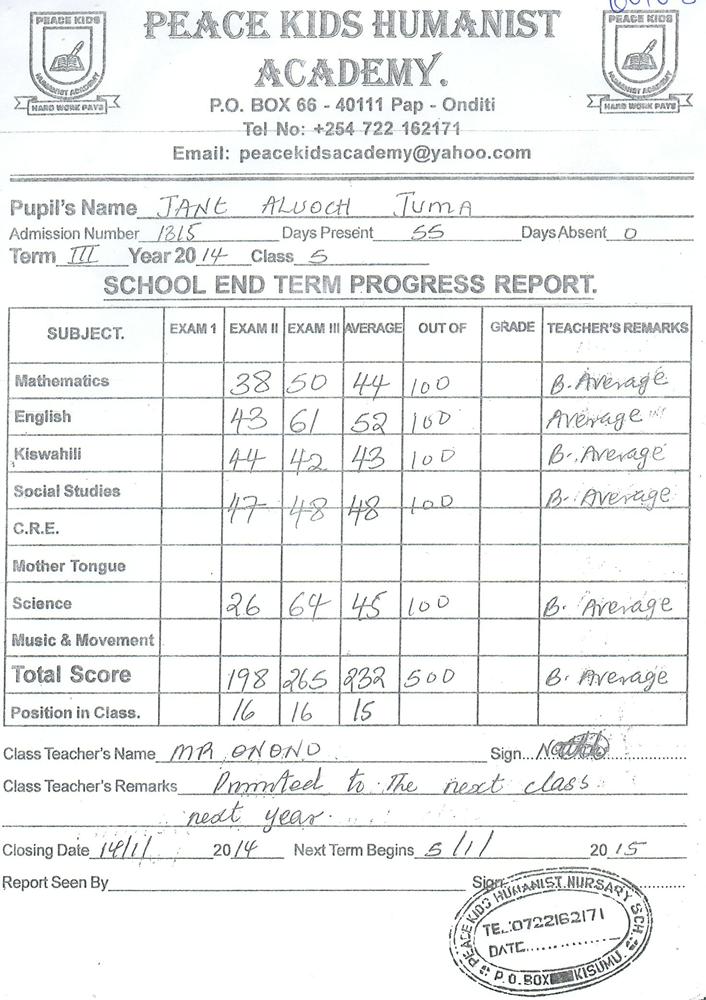 PEACE KIDS HUMANIST
ACADEMY.
PEACE KIDS
HUMANIST ACADEMY
HARD WORK PAYS
PEACE KIDS
HUMANIST ACADEMY
HARD WORK PAYS
P.O. BOX 66 - 40111 Pap - Onditi
Tel No: +254 722 162171
Email: peacekidsacademy@yahoo.com
Pupil's Name JANE ALUOCH JUMA
Admission Number 1315 Days Present 55 Days Absent 0
Term III Year 2014 Class 5
SCHOOL END TERM PROGRESS REPORT.
SUBJECT. EXAM 1 EXAM II EXAM III AVERAGE OUT OF GRADE TEACHER'S REMARKS
Mathematics 38 50 44 100 B. Average
English 43 61 52 100 Average
Kiswahili 44 42 43 100 B. Average
Social Studies 47 48 48 100 B. Average
C.R.E.
Mother Tongue
Science 26 64 45 100 B. Average
Music & Movement
Total Score 198 265 232 500 B. Average
Position in Class. 16 16 15
Class Teacher's Name MR ONONO Sign...
Class Teacher's Remarks Promoted to the next class
next year.
Closing Date 14/11/ 2014 Next Term Begins 5/1/ 2015
Report Seen By Sign
PEACE KIDS HUMANIST NURSARY SCH.
TEL:0722162171
DATE..............
P.O.BOX KISUMU